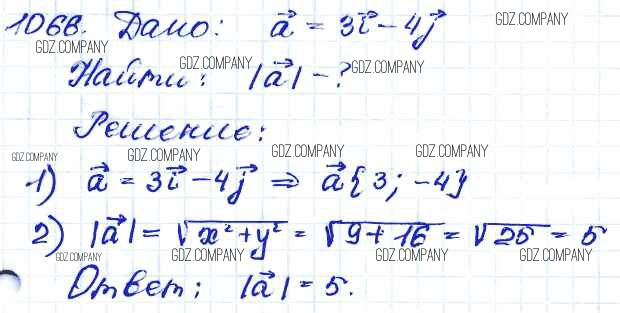 1066. Дано: a⃗ = 3i⃗ - 4j⃗
GDZ.COMPANY GDZ.COMPANY GDZ.COMPANY GDZ.COMPANY
Найти: |a⃗| - ?
GDZ.COMPANY
Решение:
GDZ.COMPANY GDZ.COMPANY GDZ.COMPANY GDZ.COMPANY
1) a⃗ = 3i⃗ - 4j⃗ ⇒ a⃗{3; -4}
2) |a⃗| = √x²+y² = √9+16 = √25 = 5
GDZ.COMPANY GDZ.COMPANY GDZ.COMPANY GDZ.COMPANY GDZ.COMPANY
Ответ: |a⃗| = 5.